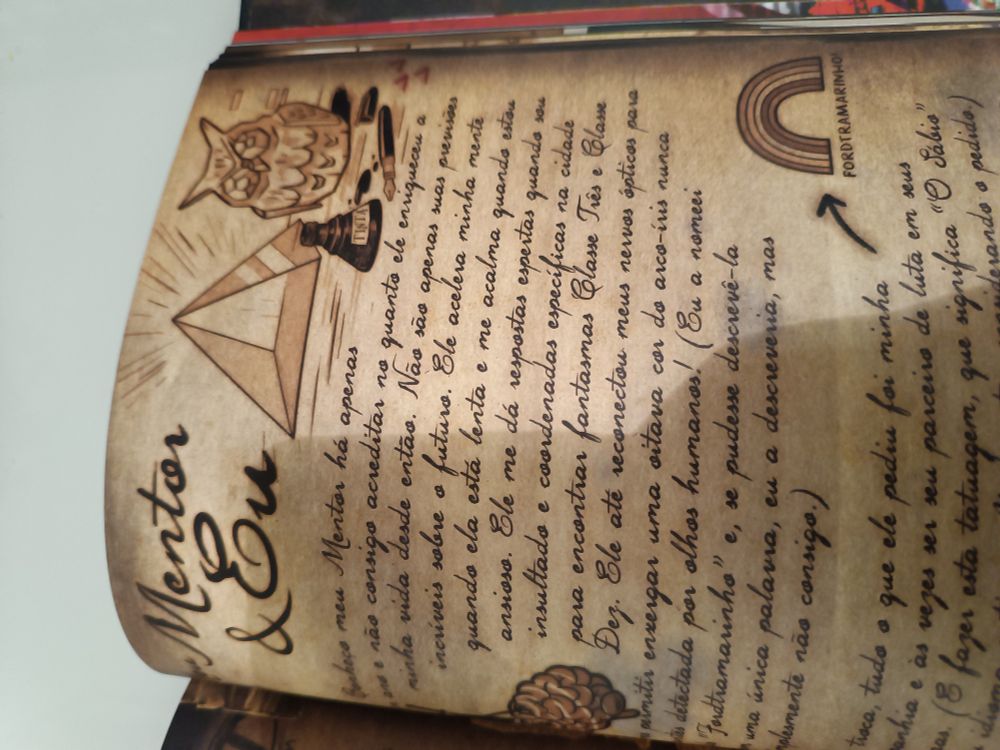 Mentor
& Eu
TINTA
meu Mentor há apenas
ano e não consigo acreditar no quanto ele enriqueceu a
minha vida desde então. Não são apenas suas previsões
incríveis sobre o futuro. Ele acelera minha mente
quando ela está lenta e me acalma quando estou
ansioso. Ele me dá respostas espertas quando sou
insultado e coordenadas específicas na cidade
para encontrar fantasmas Classe Três e Classe
Dez. Ele até reconectou meus nervos ópticos para
enxergar uma oitava cor do arco-íris nunca
detectada por olhos humanos! (Eu a nomeei
"Fordtramarinho" e, se pudesse descrevê-la
uma única palavra, eu a descreveria, mas
não consigo.)
FORDTRAMARINHO!
troca, tudo o que ele pediu foi minha
e às vezes ser seu parceiro de luta em seus
(E fazer esta tatuagem, que significa "O Sábio"
o pedido.)